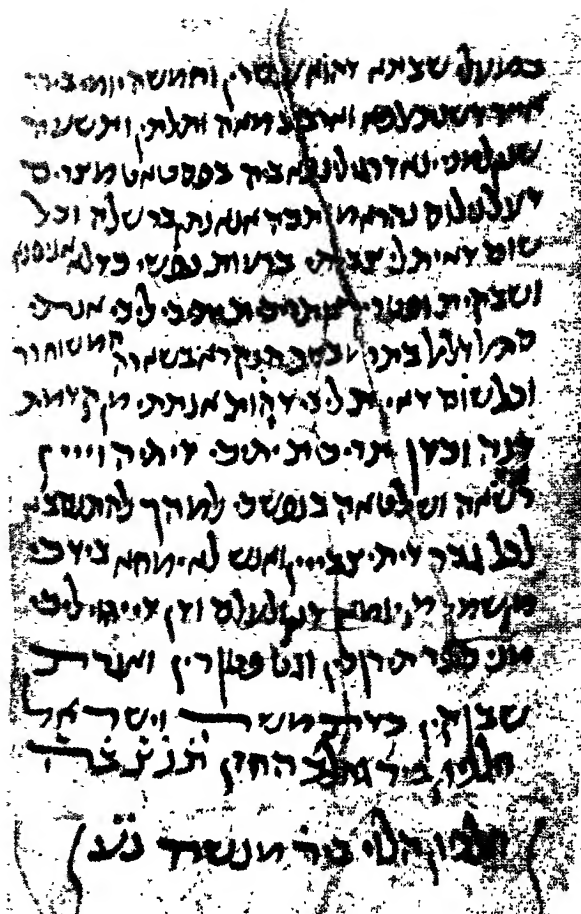 במעלי שבתא דהוא עשרין וחמשה יומי בירח
אייר דשנת אלפא וארבע מאה ותלתין ותשעה
שנין למנינא דרגילנא ביה בפסטאט מצרים
דעל נילוס נהרא מותבה אנא נתן בר שלה וכל
שום דאית לי צביתי ברעות נפשי כדלא אניסנא
ושבקית ופטרית ותריכית יתיכי ליכי אנתי
בשארה
וכל שום דאית ליכי דהות אנתתי מן קדמת
דנה וכדן תריכת יתיכי דיתיהוייין
רשאה ושלטאה בנפשכי למהך להתנסבא
לכל גבר דיתיצבייין ואנש לא ימחא בידכי
מן שמי מן יומא דנן ולעלם ודן דייהוי ליכי
מני ספר תירוכין וגט פטורין ואגרת
שבוקין כדת משה וישראל
חלפון ביר החזן תנצבה
חלפון הלוי ביר מנשה נע